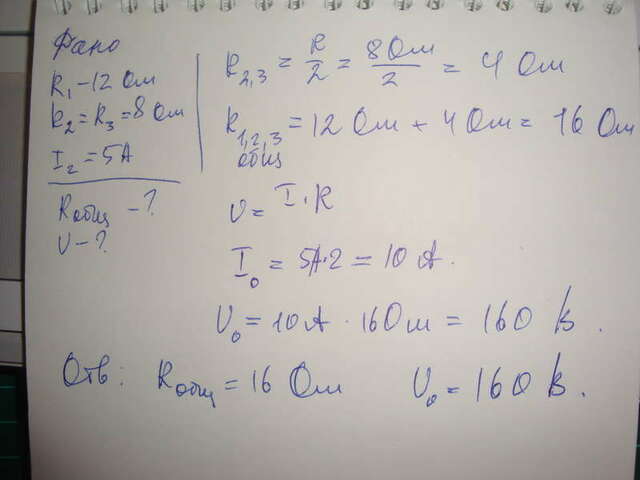 Дано
R₁ – 12 Ом
R₂ = R₃ = 8 Ом
I₂ = 5А
Rобщ – ?
U – ?
R₂,₃ = R/2 = 8 Ом/2 = 4 Ом
R₁,₂,₃ общ = 12 Ом + 4 Ом = 16 Ом
U = I · R
I₀ = 5А·2 = 10 А.
U₀ = 10 А · 16 Ом = 160 В.
Отв: Rобщ = 16 Ом U₀ = 160 В.